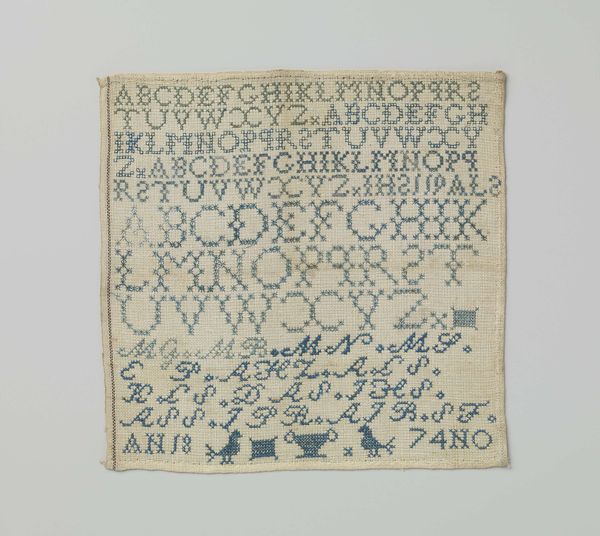 ABCDEFGHIKLMNOPPRS
TUVWXYZxABCDEFGH
IKLMNOPPRSTUVWXY
ZxABCDEFGHIKLMNOPP
RSTUVWXYZx
ABCDEFGHIK
LMNOPPRST
UVWXYZx
MG.MR.MN.MS.
E P.AHZ.ALS.
RLS.DAS.JHS.
ASS.JPR.AJB.SF.
AN18 74NO